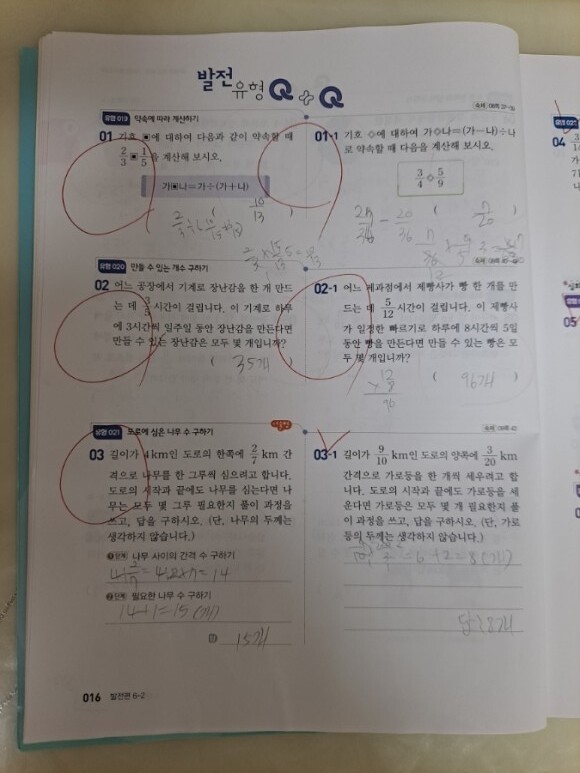 발전 유형 Q+Q
유형 019 약속에 따라 계산하기
01 기호 ▣에 대하여 다음과 같이 약속할 때
2/3▣1/5을 계산해 보시오.
가▣나=가÷(가+나)
10/13
01-1 기호 ◇에 대하여 가◇나=(가-나)÷나
로 약속할 때 다음을 계산해 보시오.
3/4◇5/9
7/20
유형 020 만들 수 있는 개수 구하기
02 어느 공장에서 기계로 장난감을 한 개 만드
는 데 3/5시간이 걸립니다. 이 기계로 하루
에 3시간씩 일주일 동안 장난감을 만든다면
만들 수 있는 장난감은 모두 몇 개입니까?
( 35개
02-1 어느 제과점에서 제빵사가 빵 한 개를 만
드는 데 5/12시간이 걸립니다. 이 제빵사
가 일정한 빠르기로 하루에 8시간씩 5일
동안 빵을 만든다면 만들 수 있는 빵은 모
두 몇 개입니까?
( 96개
12
×8
96
유형 021 도로에 심은 나무 수 구하기
03 길이가 4 km인 도로의 한쪽에 2/7 km 간
격으로 나무를 한 그루씩 심으려고 합니다.
도로의 시작과 끝에도 나무를 심는다면 나
무는 모두 몇 그루 필요한지 풀이 과정을
쓰고, 답을 구하시오. (단, 나무의 두께는
생각하지 않습니다.)
❶단계 나무 사이의 간격 수 구하기
❷단계 필요한 나무 수 구하기
14+1=15(개)
답 15개
03-1 길이가 9/10 km인 도로의 양쪽에 3/20 km
간격으로 가로등을 한 개씩 세우려고 합니
다. 도로의 시작과 끝에도 가로등을 세
운다면 가로등은 모두 몇 개 필요한지 풀
이 과정을 쓰고, 답을 구하시오. (단, 가로
등의 두께는 생각하지 않습니다.)
=6+2=8(개)
답 8개
016 발전편 6-2
04
05